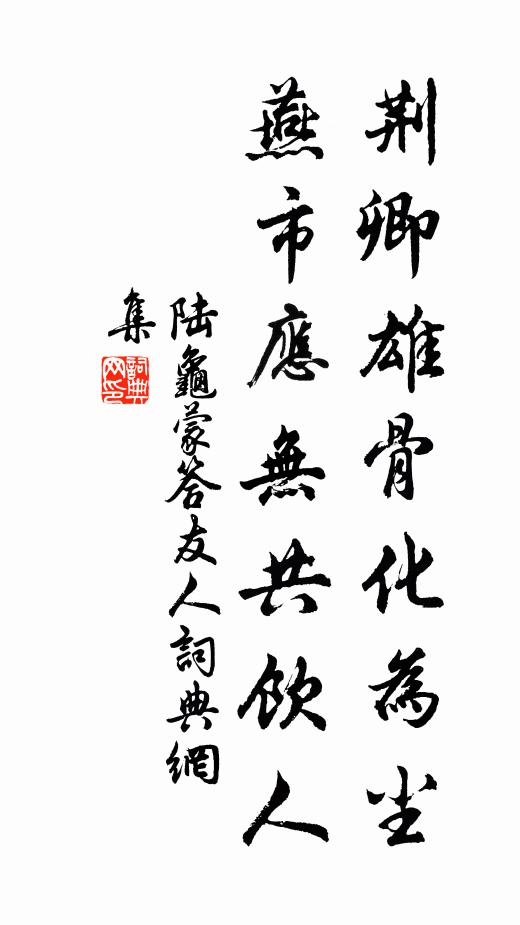 荆卿雄骨化為尘
燕市應無共飲人
陆龜蒙答友人詞典網
集
詞典网印